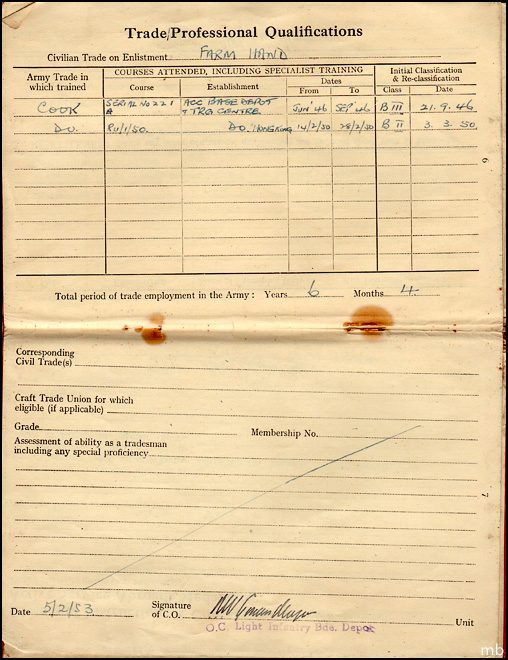 Trade/Professional Qualifications
Civilian Trade on Enlistment. FARM HAND
Army Trade in which trained
COURSES ATTENDED, INCLUDING SPECIALIST TRAINING
Initial Classification & Re-classification
Course Establishment Dates From To Class Date
COOK SERIAL NO 221 A ACC BASE DEPOT & TRG CENTRE JUN '46 SEP '46 B III 21. 9. 46
DO. DO. HONG KONG 14/2/50 28/2/50 B II 3. 3. 50
6
Total period of trade employment in the Army: Years 6 Months 4
Corresponding
Civil Trade(s)
Craft Trade Union for which
eligible (if applicable)
Grade Membership No.
Assessment of ability as a tradesman
including any special proficiency
7
Date 5/2/53 Signature of C.O. Unit
O.C. Light Infantry Bde. Depot
mb